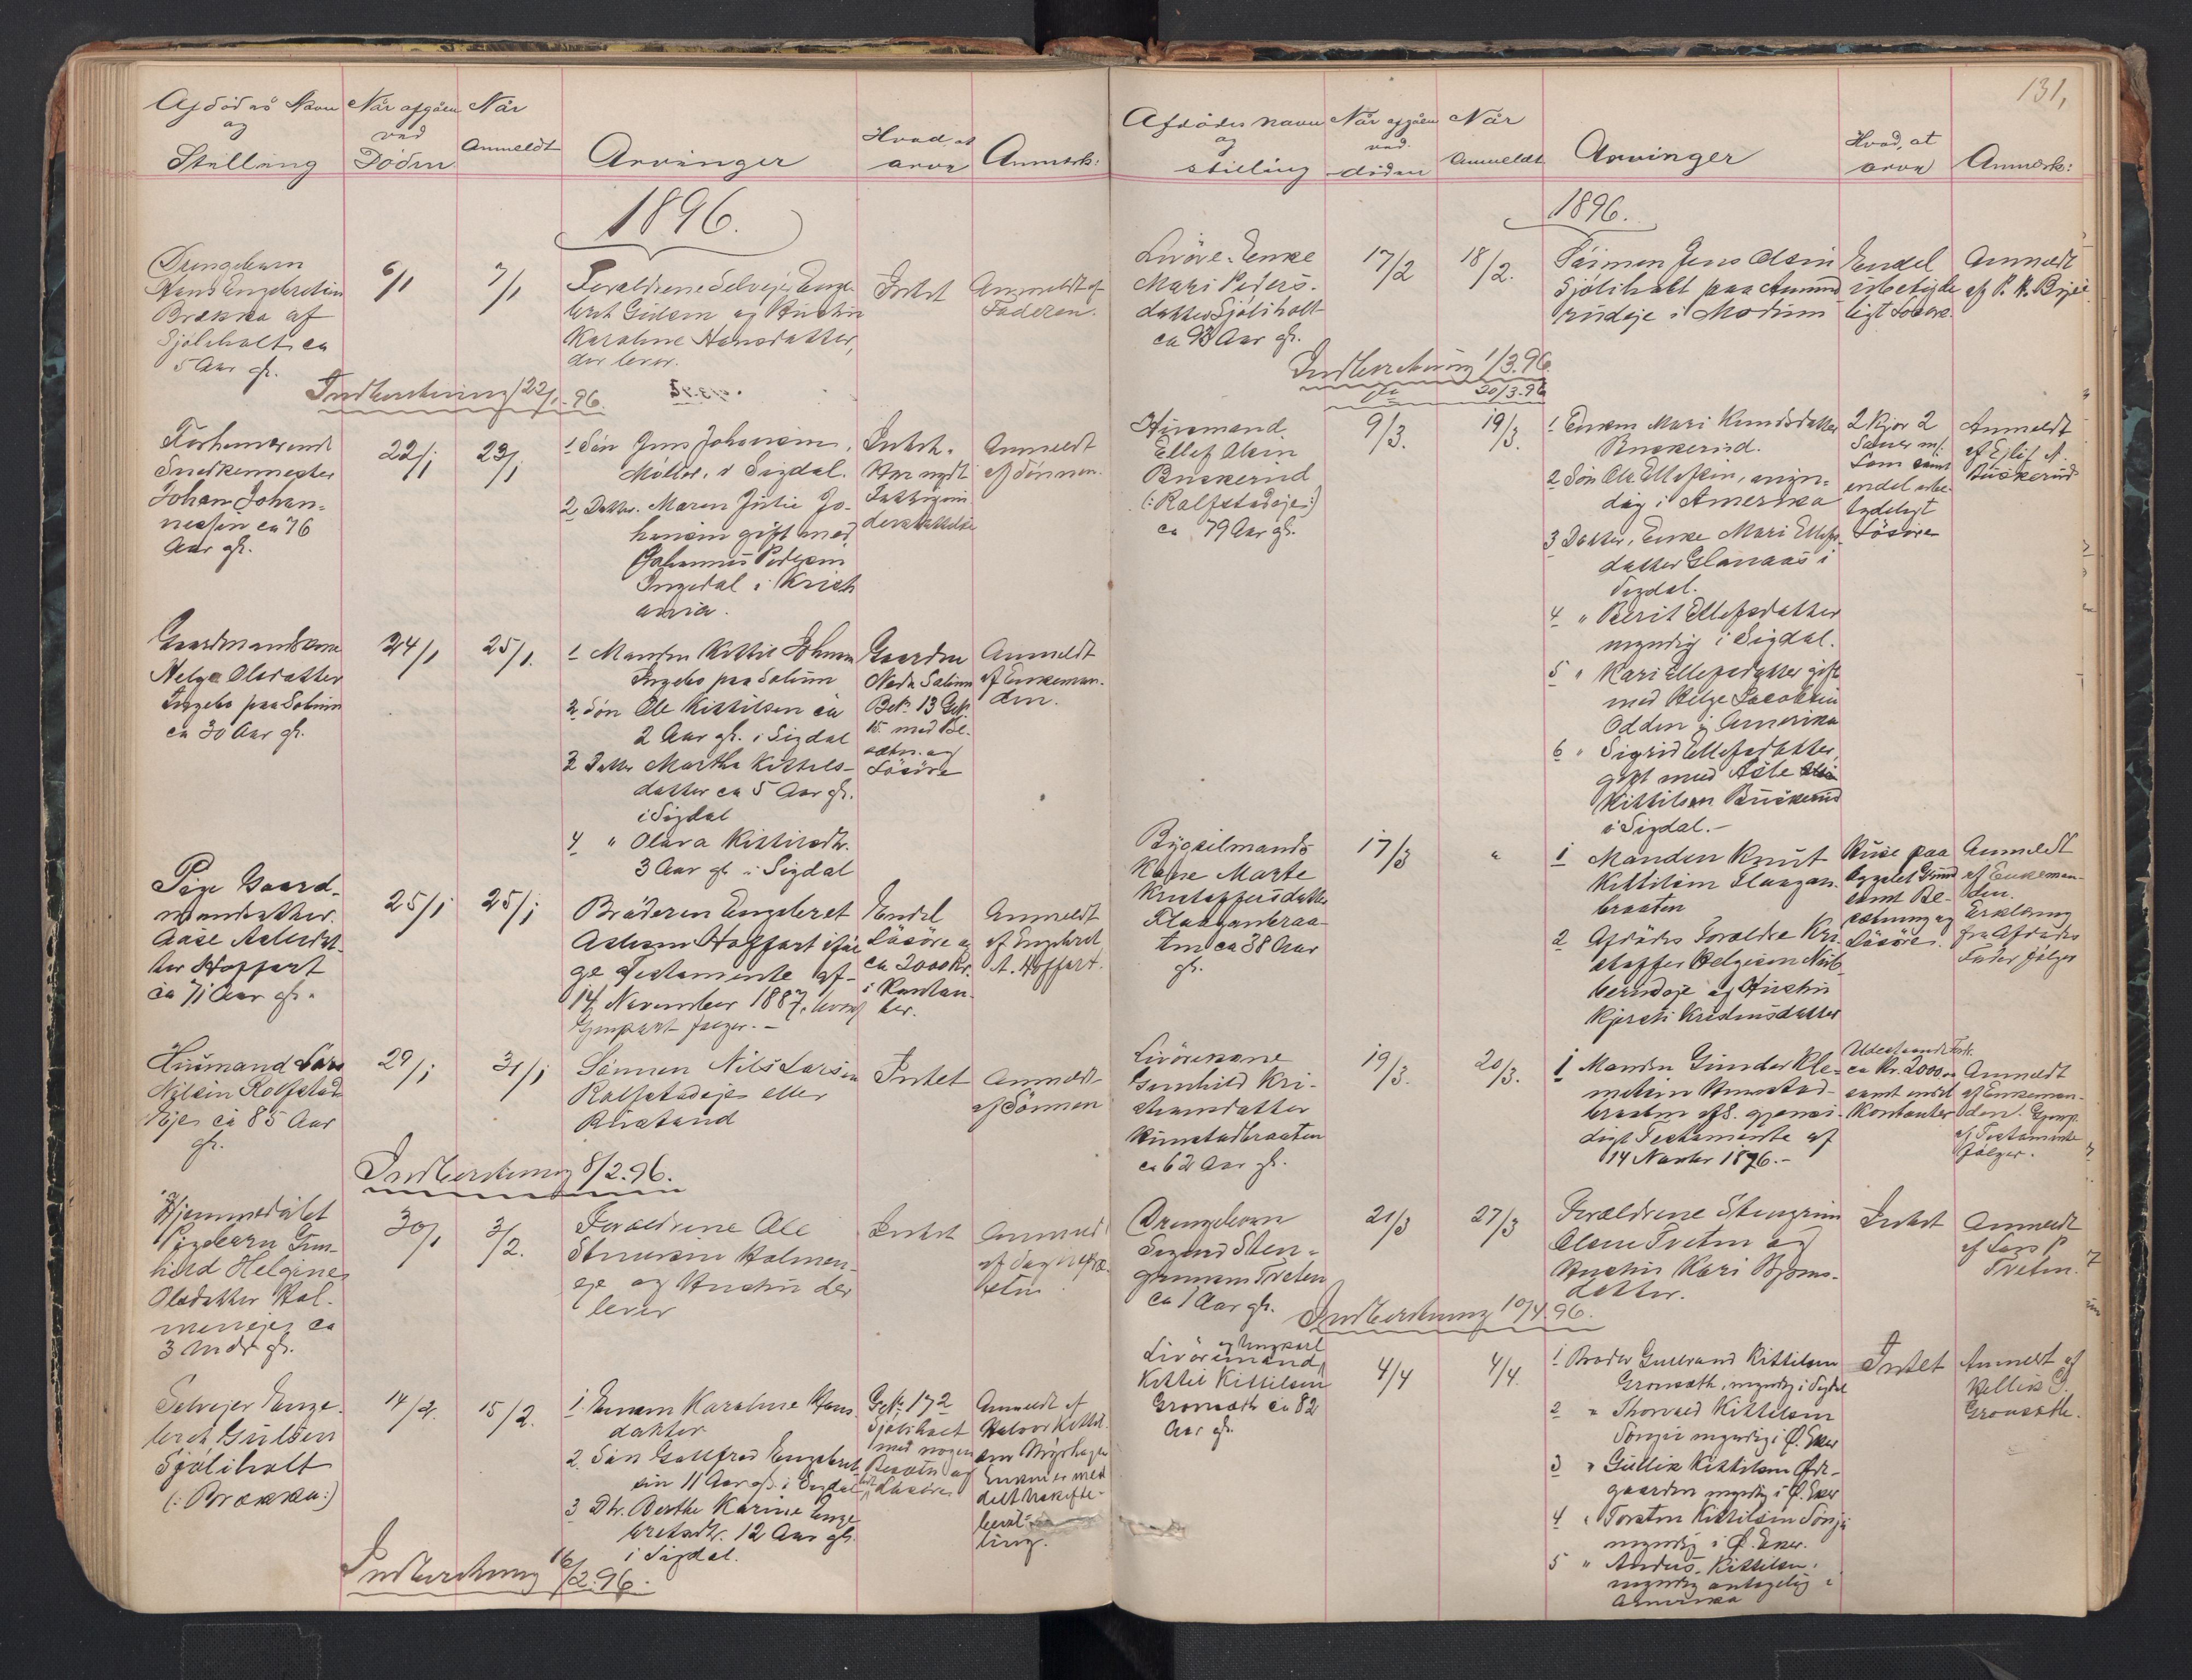 131,
Afdödes Navn
og
Stilling
Når afgåen
ved
Döden
Når
Anmeldt
Arvinger
Hvad, at
arve
Anmærk:
1896.
Drengebarn
Hans Engebretsen
Brækka af
Sjöliholt ca
5 Aar gl.
6/1
7/1
Forældrene Selvejer Enge-
bret Gulsen og Hustru
Karoline Hansdatter,
der lever.
Intet
Anmeldt af
Faderen.
Indberetning 22/1-96.
Forhenværende
Snedkermester
Johan Johan-
nessen ca 76
Aar gl.
22/1
23/1
1 Sön Jens Johansen,
Möller, i Sigdal.
2 Datter Maren Julie Jo-
hansen gift med
Johannes Pedersen
Ingedal i Kristi
ania.
Intet.
Har nydt
Fattigun-
derstöttelse
Anmeldt
af Sönnen.
Gaardmandskone
Helge Olsdatter
Ingebo paa Solum
ca 30 Aar gl.
24/1
25/1.
1 Manden Kittil Johnsen
Ingebo paa Solum
2 Sön Ole Kittilsen ca
2 Aar gl. i Sigdal
3 Datter Marthe Kittils-
datter ca 5 Aar gl.
i Sigdal
4 " Olava Kittilsdtr.
3 Aar gl. i Sigdal
Gaarden
Nedre Solum
Bet. 13 Gbn
15 med Be-
sætn. og
Lösöre
Anmeldt
af Enkeman-
den.
Pige Gaard-
mandsdatter
Aase Asle
ter Hoffart
ca 71 Aar gl.
25/1
25/1
Broderen Engebret
Aslesen Hoffart iföl
ge Testamente af
14 November 1887, hvoraf
Gjenpart fölger. -
Endel
Lösöre og
ca 2000 Kr.
i Kontan-
ter.
Anmeldt
af Engebret
A. Hoffart.
Husmand Lars
Nilsen Rolfstad
Eje ca 85 Aar
gl.
29/1
31/1
Sönnen Nils Larsen
Rolfstadeje eller
Rustand
Intet
Anmeldt
af Sönnen
Indberetning 8/2.96.
Hjemmedöbt
Pigebarn Gun-
hild Helgine
Olsdatter Hol-
meneje ca
3 Mdr gl.
30/1
3/2.
Forældrene Ole
Holmen-
eje og Hustru der
lever
Intet
Anmeldt
af Sognepræ-
sten
Selvejer Enge-
bret Gulsen
Sjöliholt
(: Brækka:)
14/2.
15/2.
1 Enken Karoline Hans-
datter
2. Sön Gottfred Engebret-
sen 11 Aar gl. i Sigdal
3 Dtr. Berthe Karine Enge
bretsdtr. 12 Aar gl.
i Sigdal.
GNo 172
Sjöliholt
med nogen
Besætn og
Lösöre
Anmeldt af
Halvor Kittil-
sen
Enken er med
delt Uskifte-
bevil-
ling.
Indberetning 16/2.96.
Afdödes Navn
og
stilling
Når afgåen
ved
döden
Når
Anmeldt
Arvinger
Hvad, at
arve
Anmærk:
1896.
Livöre-Enke
Mari Peders-
datter Sjöliholt
ca 93 Aar gl.
17/2
18/2.
Sönnen Jens Olsen
Sjöliholt paa Amund
rudeje i Modum
Endel
ubetyde
ligt Lösöre.
Anmeldt
af P. K.
Indberetning 1/3.96
do 20/3.96
Husmand
Ellef Olsen
Buskerud
(: Rolfstadeje:)
ca 79 Aar gl.
9/3.
19/3.
1 Enken Mari Knudsdatter
Buskerud.
2 Sön Ole Ellefsen, myn-
dig i Amerika
3 Datter, Enke Mari Ellefs-
datter Glanaas i
Sigdal.
4 " Berit Ellefsdatter
myndig i Sigdal.
5 " Kari Ellefsdatter gift
med Helge Jacobsen
Odden i Amerika
6 " Sigrid Ellefsdatter,
gift med Asle
Kittilsen Buskerud
i Sigdal. -
2 Kjör 2
Sauer m/
Lam samt
endel ube-
tydeligt
Lösöre
Anmeldt
af Ejlif A.
Buskerud
Bygselmands
Kone Marte
Kristoffersdatter
Flaaganbraa-
ten ca 38 Aar
gl.
17/3
"
1 Manden Knut
Kittilsen Flaagan-
braaten
2 Afdödes Forældre Kri-
stoffer Helgesen Nub-
berudeje og Hustru
Kjersti Kristensdatter
Huse paa
bygslet Grund
samt Be-
sætning og
Lösöre.
Anmeldt
af Enkeman-
den.
Erklæring
fra Afdödes
Fader fölger
Livörekone
Gunhild Kri-
stiansdatter
Kunstadbraaten
ca 62 Aar gl.
19/3.
20/3.
1 Manden Gunder Kle-
metsen Kunstad-
braaten efl. gjensi-
digt Testamente af
14 Novbr 1876. -
Udestaaende Fordr.
ca Kr. 2000
samt endel
Kontanter
Anmeldt
af Enkeman-
den. Gjenp.
af Testamente
fölger.
Drengebarn
Svend Sten-
grimsen Tveten
ca 1 Aar gl.
21/3
27/3
Forældrene Stengrim
Olsen Tveten og
Hustru Kari Bjöns-
datter.
Intet
Anmeldt
af Lars P.
Tveten.
Indberetning 10/4.96.
og Ungkarl
Livöremand
Kittil Kittilsen
Gronsæth ca 82
Aar gl.
4/4
4/4.
1 Broder Gulbrand Kittilsen
Gronsæth, myndig i Sigdal
2 " Thorvald Kittilsen
myndig i Ö. Eker
3 " Gullik Kittilsen Öde-
gaarden myndig i Ö. Eker
4 " Torsten Kittilsen
myndig i Ö. Eker.
5 " Anders Kittilsen.
myndig antagelig i
Amerika
Intet
Anmeldt af
G.
Gronsæth.